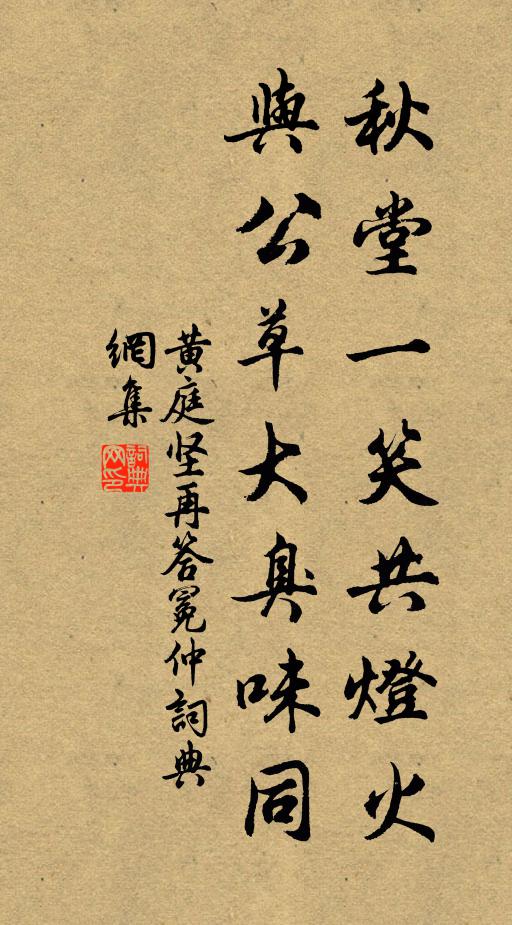 秋堂一笑共燈火
與公草大臭味同
黄庭坚再答冕仲詞典
網集
詞典網印